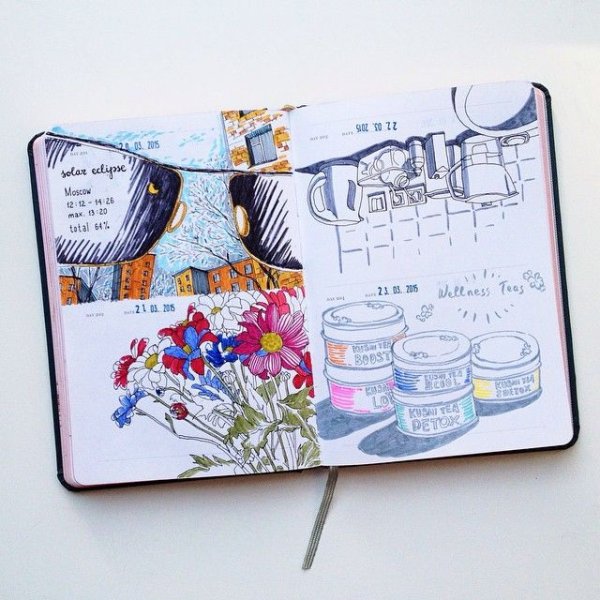 20.03.2015
solar eclipse
Moscow
12:12 - 14:26
max. 13:20
total 64%
21.03.2015
22.03.2015
23.03.2015
Wellness Teas
KUSMI TEA
BOOST
KUSMI
LO
KUSMI TEA
BCOOL
KUSMI TEA
DETOX
KUSMI TEA